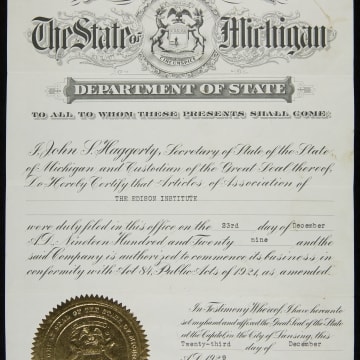 The State of Michigan
DEPARTMENT OF STATE
TO ALL TO WHOM THESE PRESENTS SHALL COME:
I, John S. Haggerty, Secretary of State of the State
of Michigan and Custodian of the Great Seal thereof,
Do Hereby Certify that Articles of Association of
THE EDISON INSTITUTE
were duly filed in this office on the 23rd day of December
A.D. Nineteen Hundred and Twenty nine and the
said Company is authorized to commence its business in
conformity with Act 84, Public Acts of 1921, as amended.
In Testimony Whereof, I have hereunto
set my hand and affixed the Great Seal of the State
at the Capitol, in the City of Lansing, this
Twenty-third day of December